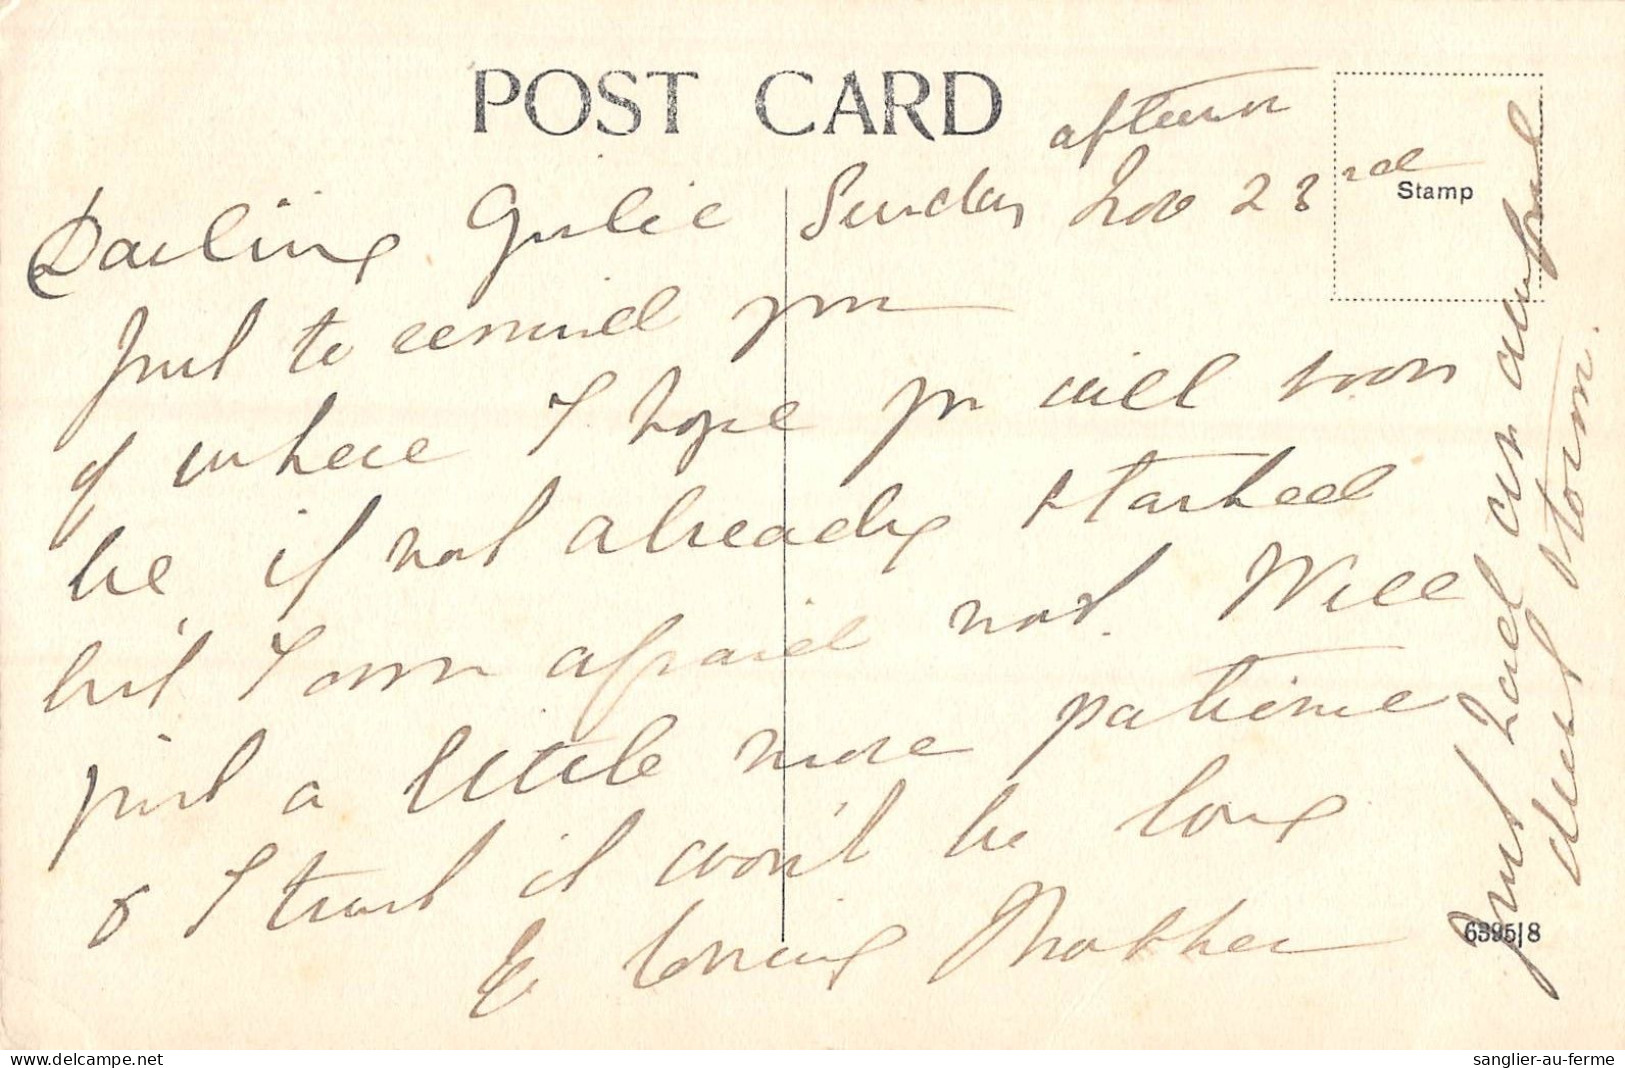 POST CARD
Stamp
Sunday afternn
Nov 23rd
Darling
Just to remind you
of where I hope you will soon
be if not already started
but I am afraid not. Well
just a little more patience
& I trust it won't be long
Yr loving Mother
Just had an awful
dust storm.
6395/8
delcampe.net
sanglier-au-ferme